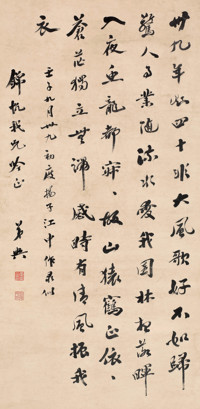 卅九年知四十非大風歌好不如歸
驚人事業隨流水愛我園林想落暉
入夜魚龍都寂〻故山猿鶴正依〻
蒼茫獨立無端感時有清風振我
衣
壬子九月卅九初度揚子江中作录似
錦帆我兄吟正
弟興